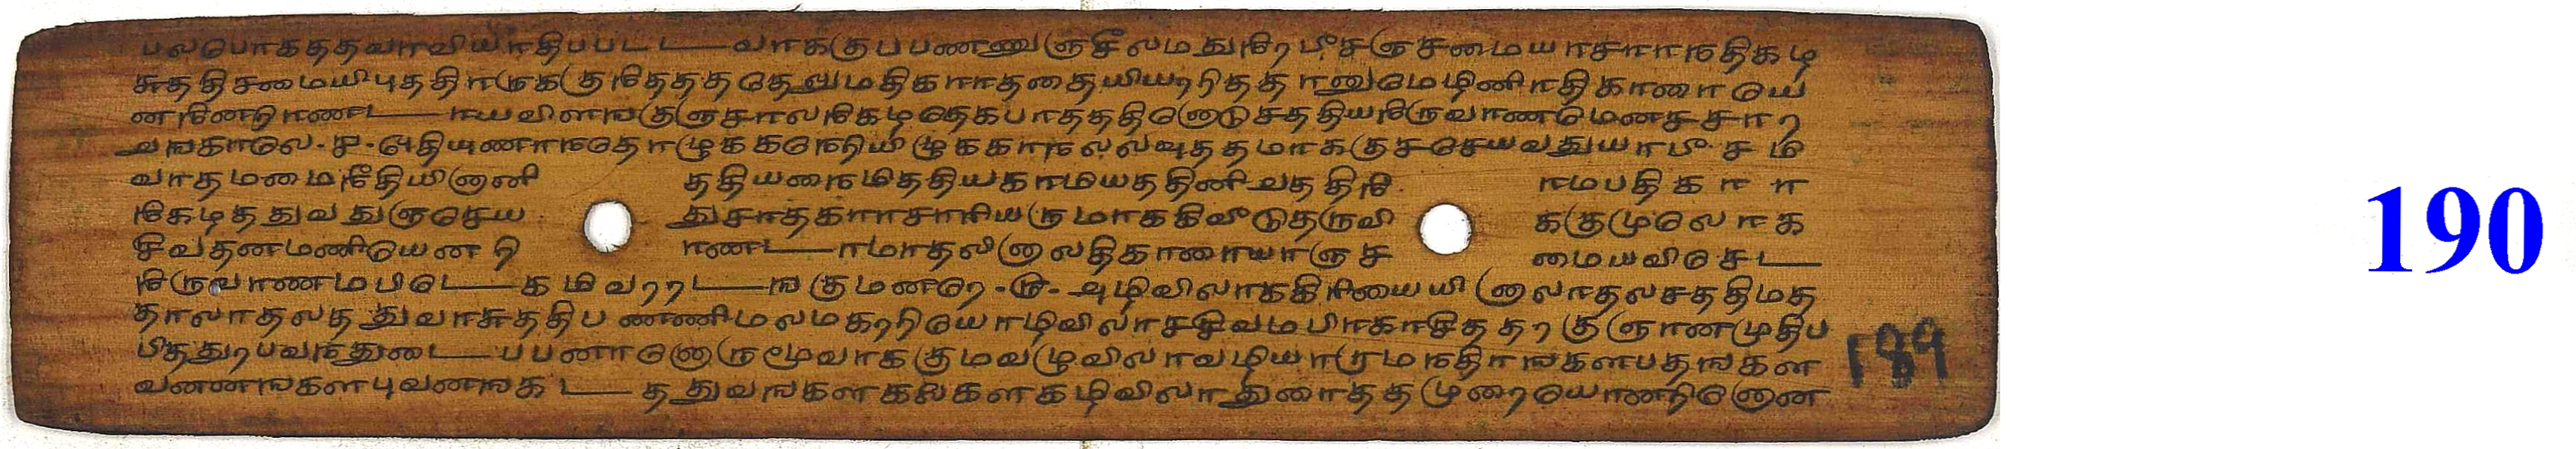 பலபொகததவாவியாதிபபடடவாககுபபணணுஞசீலமதுநிரபீசஞசமையாசாாநதிகழ
சுததிசமையிபுததிாருககுநிதததததெலுமதிகாாததையியறறிததானுமெழிலிாதிகாரையெ
னநினறிரணடாயவிளஙகுஞசாலநிகழதெகபாதததினொடுசததியநிருவாணமெனசசாற
வஙகாலெ.ச.ஓதியுணாநதொழுககநெறியிழுககாநலலவுததமாககுசசெயவதுயாபீசமி
வாதமமைநீதியினானி ததியநைமிததியகாமியததினிறுததிநி ாமபதிகாா
நிகழததுவதுஞசெய துசாதகராசாரியருமாககிவீடுதருவி ககுமுலொக
சிவதனமணியெனறி ரணடாமாதலினாலதிகாரையாஞச மையவிசெட
நிருவாணமபிடெகமிவறறடஙகுமனறெ.ரு.அழிவிலாககிரியையினாலாதலசததிமத
தாலாதலததுவாசுததிபணணிமலமகறறியொழிவிலாசசிவமபிரகாசிததறகுஞானமுதிப
பிததுறபவநதுடைபபனாரனொருமூவாககுமவழுவிலாவழியாறுமநதிரஙகளபதஙகள
வனனஙகளபுவனஙகடததுவஙகளகலைகளகழிவிலாதுரைததமுறையொனறினொன
189
190